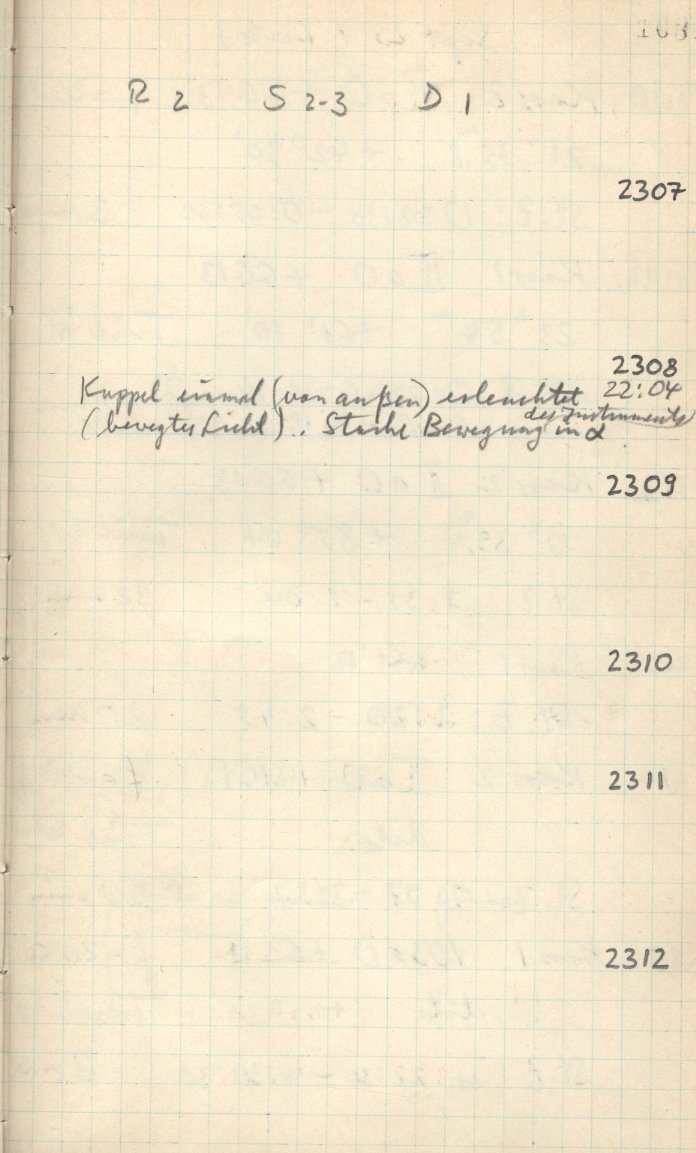 103
R 2 S 2-3 D 1
2307
2308
Kuppel einmal (von außen) erleuchtet 22:04
(bewegtes Licht). Starke Bewegung des Instruments in α
2309
2310
2311
2312